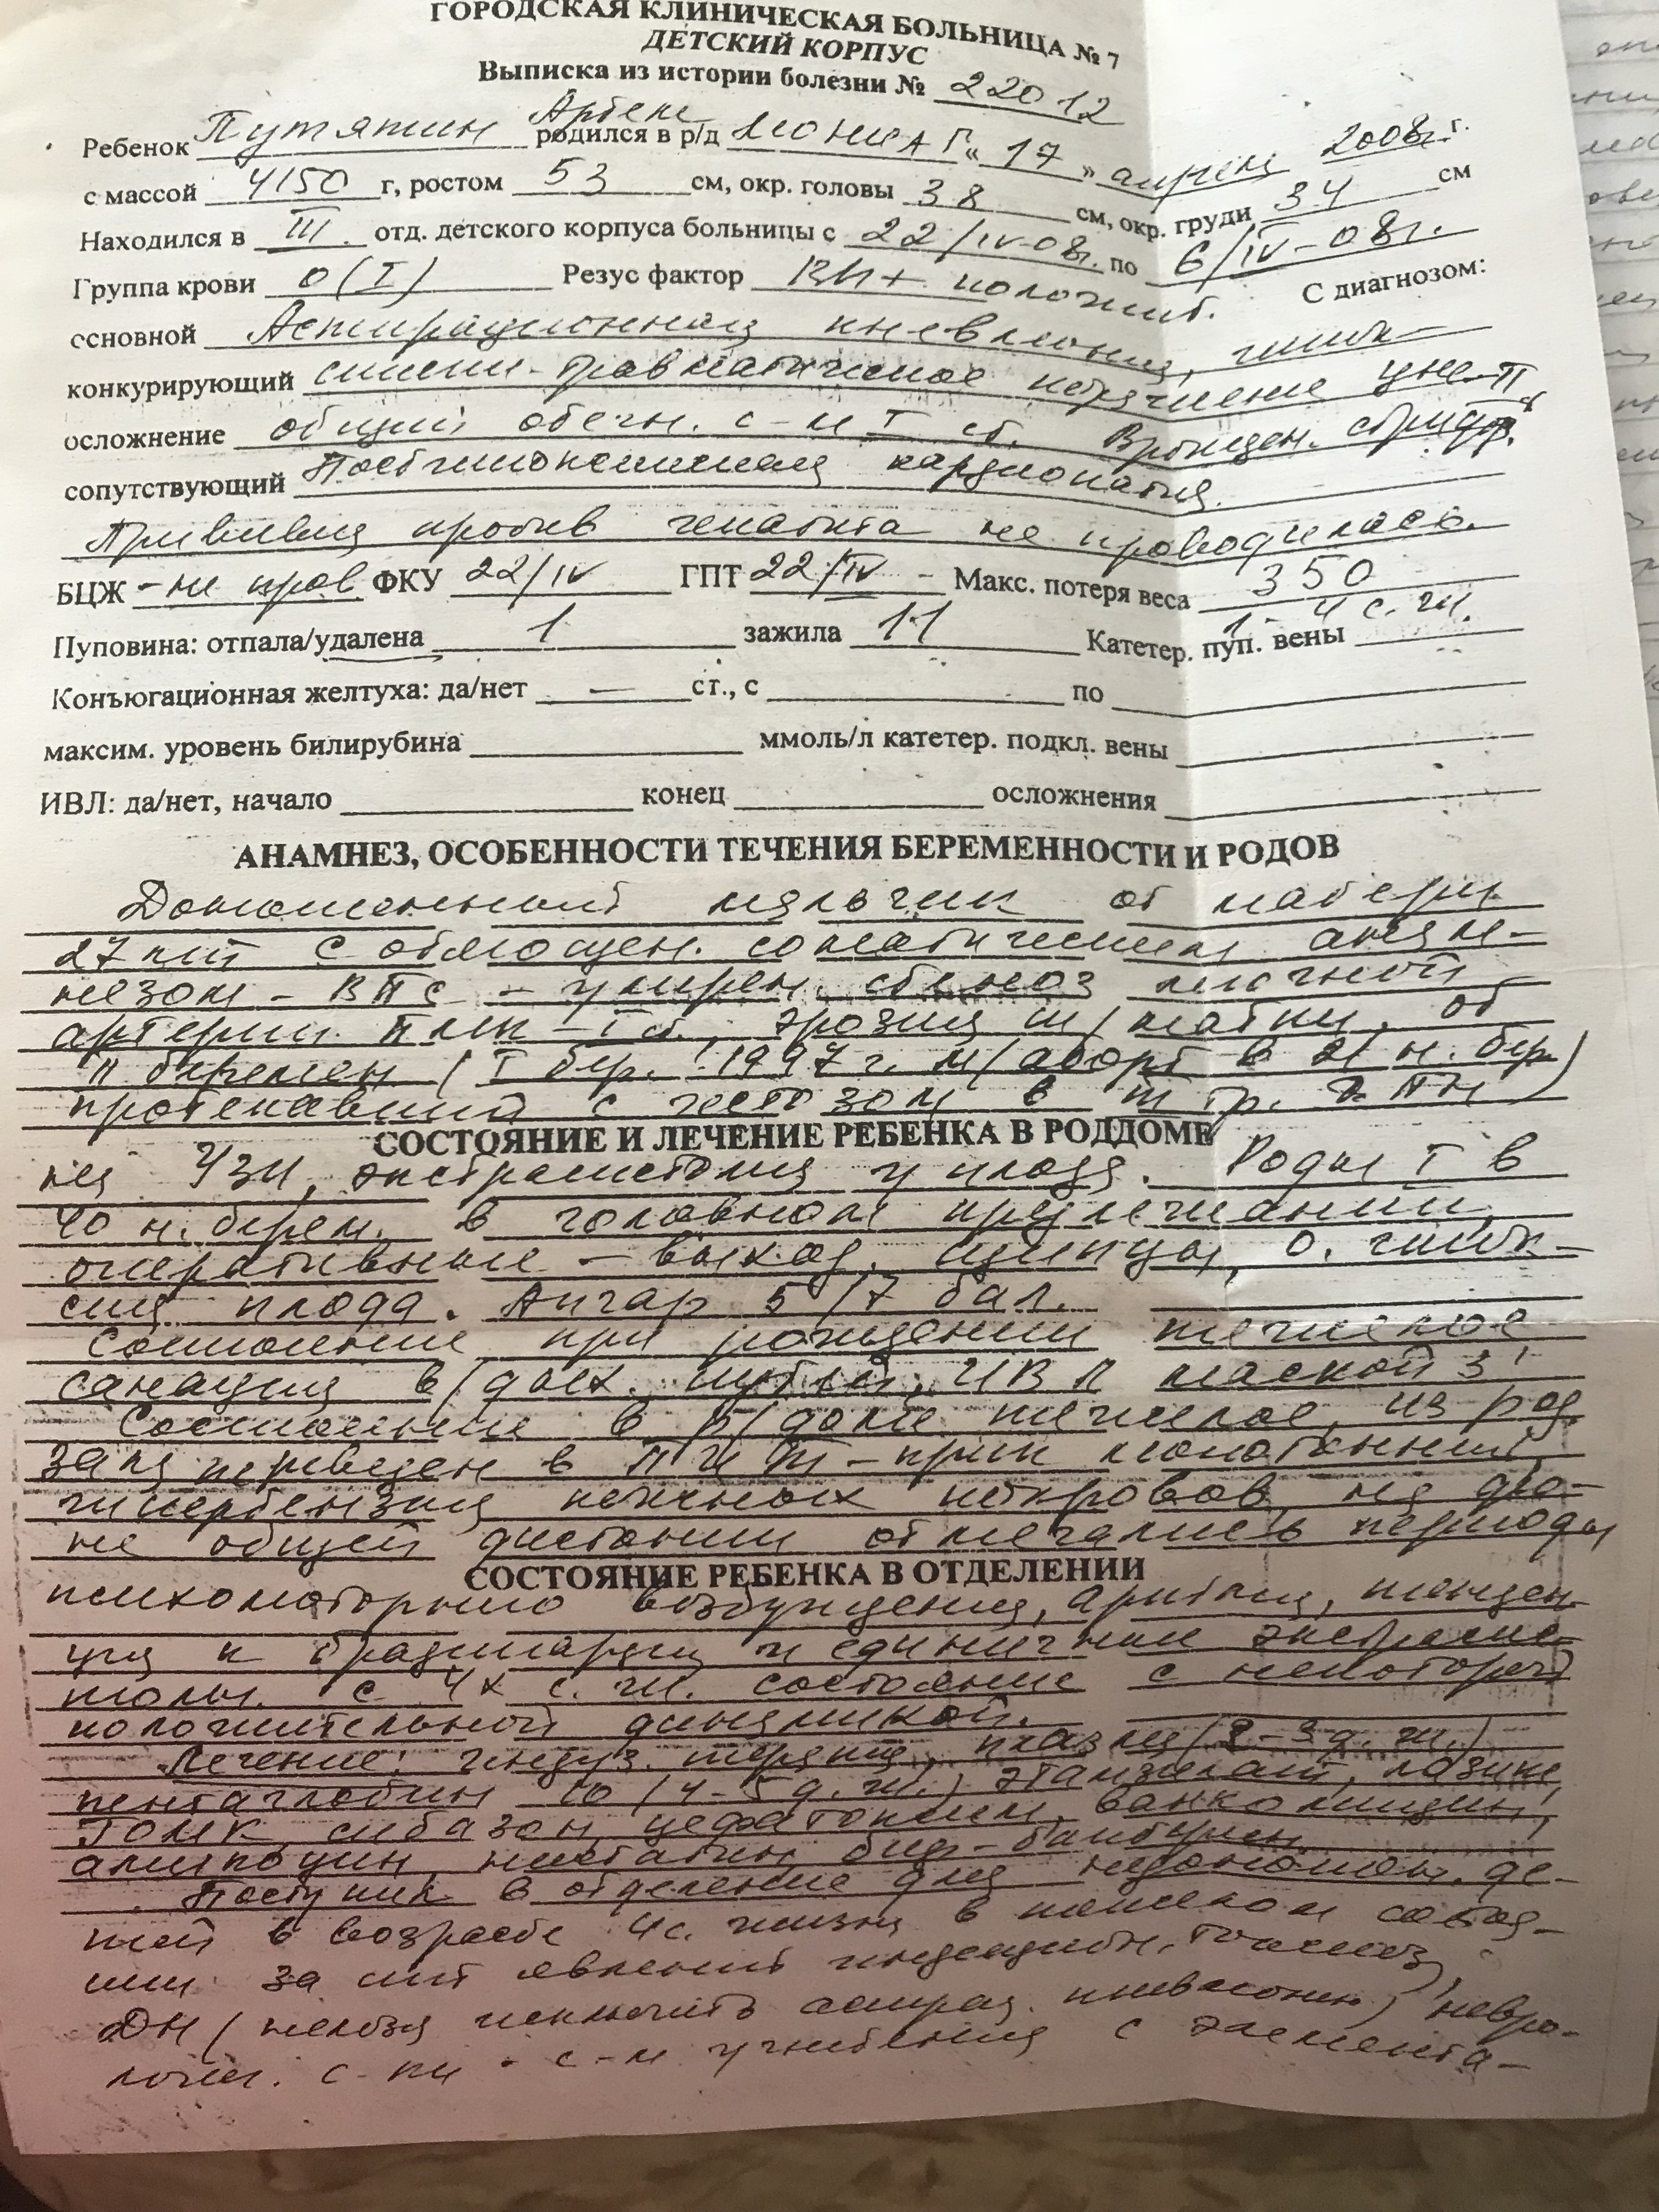 ГОРОДСКАЯ КЛИНИЧЕСКАЯ БОЛЬНИЦА № 7
ДЕТСКИЙ КОРПУС
Выписка из истории болезни № 22012
Ребенок Путятин Артем родился в р/д « 17 » апреля 2008г. г.
с массой 4150 г, ростом 53 см, окр. головы 38 см, окр. груди 34 см
Находился в III отд. детского корпуса больницы с 22/IV-08г. по 6/IV-08г.
Группа крови 0(I) Резус фактор Rh+ положит. С диагнозом:
основной Аспирационная пневмония, гипок-
конкурирующий сически-травматическое поражение ЦНС II
осложнение общий отечн. с-м I ст. Врожден. стридор.
сопутствующий Постгипоксическая кардиопатия.
Прививка против гепатита не проводилась.
БЦЖ - не пров ФКУ 22/IV ГПТ 22/IV - Макс. потеря веса 350
Пуповина: отпала/удалена 1 зажила 11 Катетер. пуп. вены 1 - 4 с. ж.
Конъюгационная желтуха: да/нет — ст., с по
максим. уровень билирубина ммоль/л катетер. подкл. вены
ИВЛ: да/нет, начало конец осложнения
АНАМНЕЗ, ОСОБЕННОСТИ ТЕЧЕНИЯ БЕРЕМЕННОСТИ И РОДОВ
Доношенный мальчик от матери
27 лет с отягощен. соматическим анам-
незом - ВПС - умерен. стеноз легочной
артерии. ПМК - I ст., эрозия ш/матки, от
II беремен (I бер. 1997г. м/аборт в 21 н. бер)
протекавшей с гестозом в III тр.
СОСТОЯНИЕ И ЛЕЧЕНИЕ РЕБЕНКА В РОДДОМЕ
на УЗИ, экстрасистолия у плода. Роды I в
40 н. берем. в головном предлежании,
оперативные - выход. щипцы, о. гипок-
сия плода. Апгар 5/7 бал.
Состояние при рождении тяжелое
санация в/дых. путей, ИВЛ маской 3'
Состояние в р/доме тяжелое, из род.
зала переведен в ПИТ - крик монотонный,
гиперестезия кожных покровов, на фо-
не общей дистонии отмечались периоды
СОСТОЯНИЕ РЕБЕНКА В ОТДЕЛЕНИИ
психомоторного возбуждения, аритмия, тенден-
ция к брадикардии и единичные экстрасис-
толы. с 4х с. ж. состояние с некоторой
положительной динамикой.
Лечение: инфуз. терапия, плазма (2-3 д. ж.)
пентаглобин 10 (4-5 д. ж.) этамзилат, лазикс,
ГОМК, сибазон, цефотоксим, ванкомицин,
ампиокс, нистатин, бифидумбактерин
Поступил в отделение для недоношен. де-
тей в возрасте 4с. жизни в тяжелом состоя-
нии за счет явлений инфекцион. токсикоза,
ДН (нельзя исключить аспирац. пневмонию) невро-
логич. с-ки - с-м угнетения с элемента-